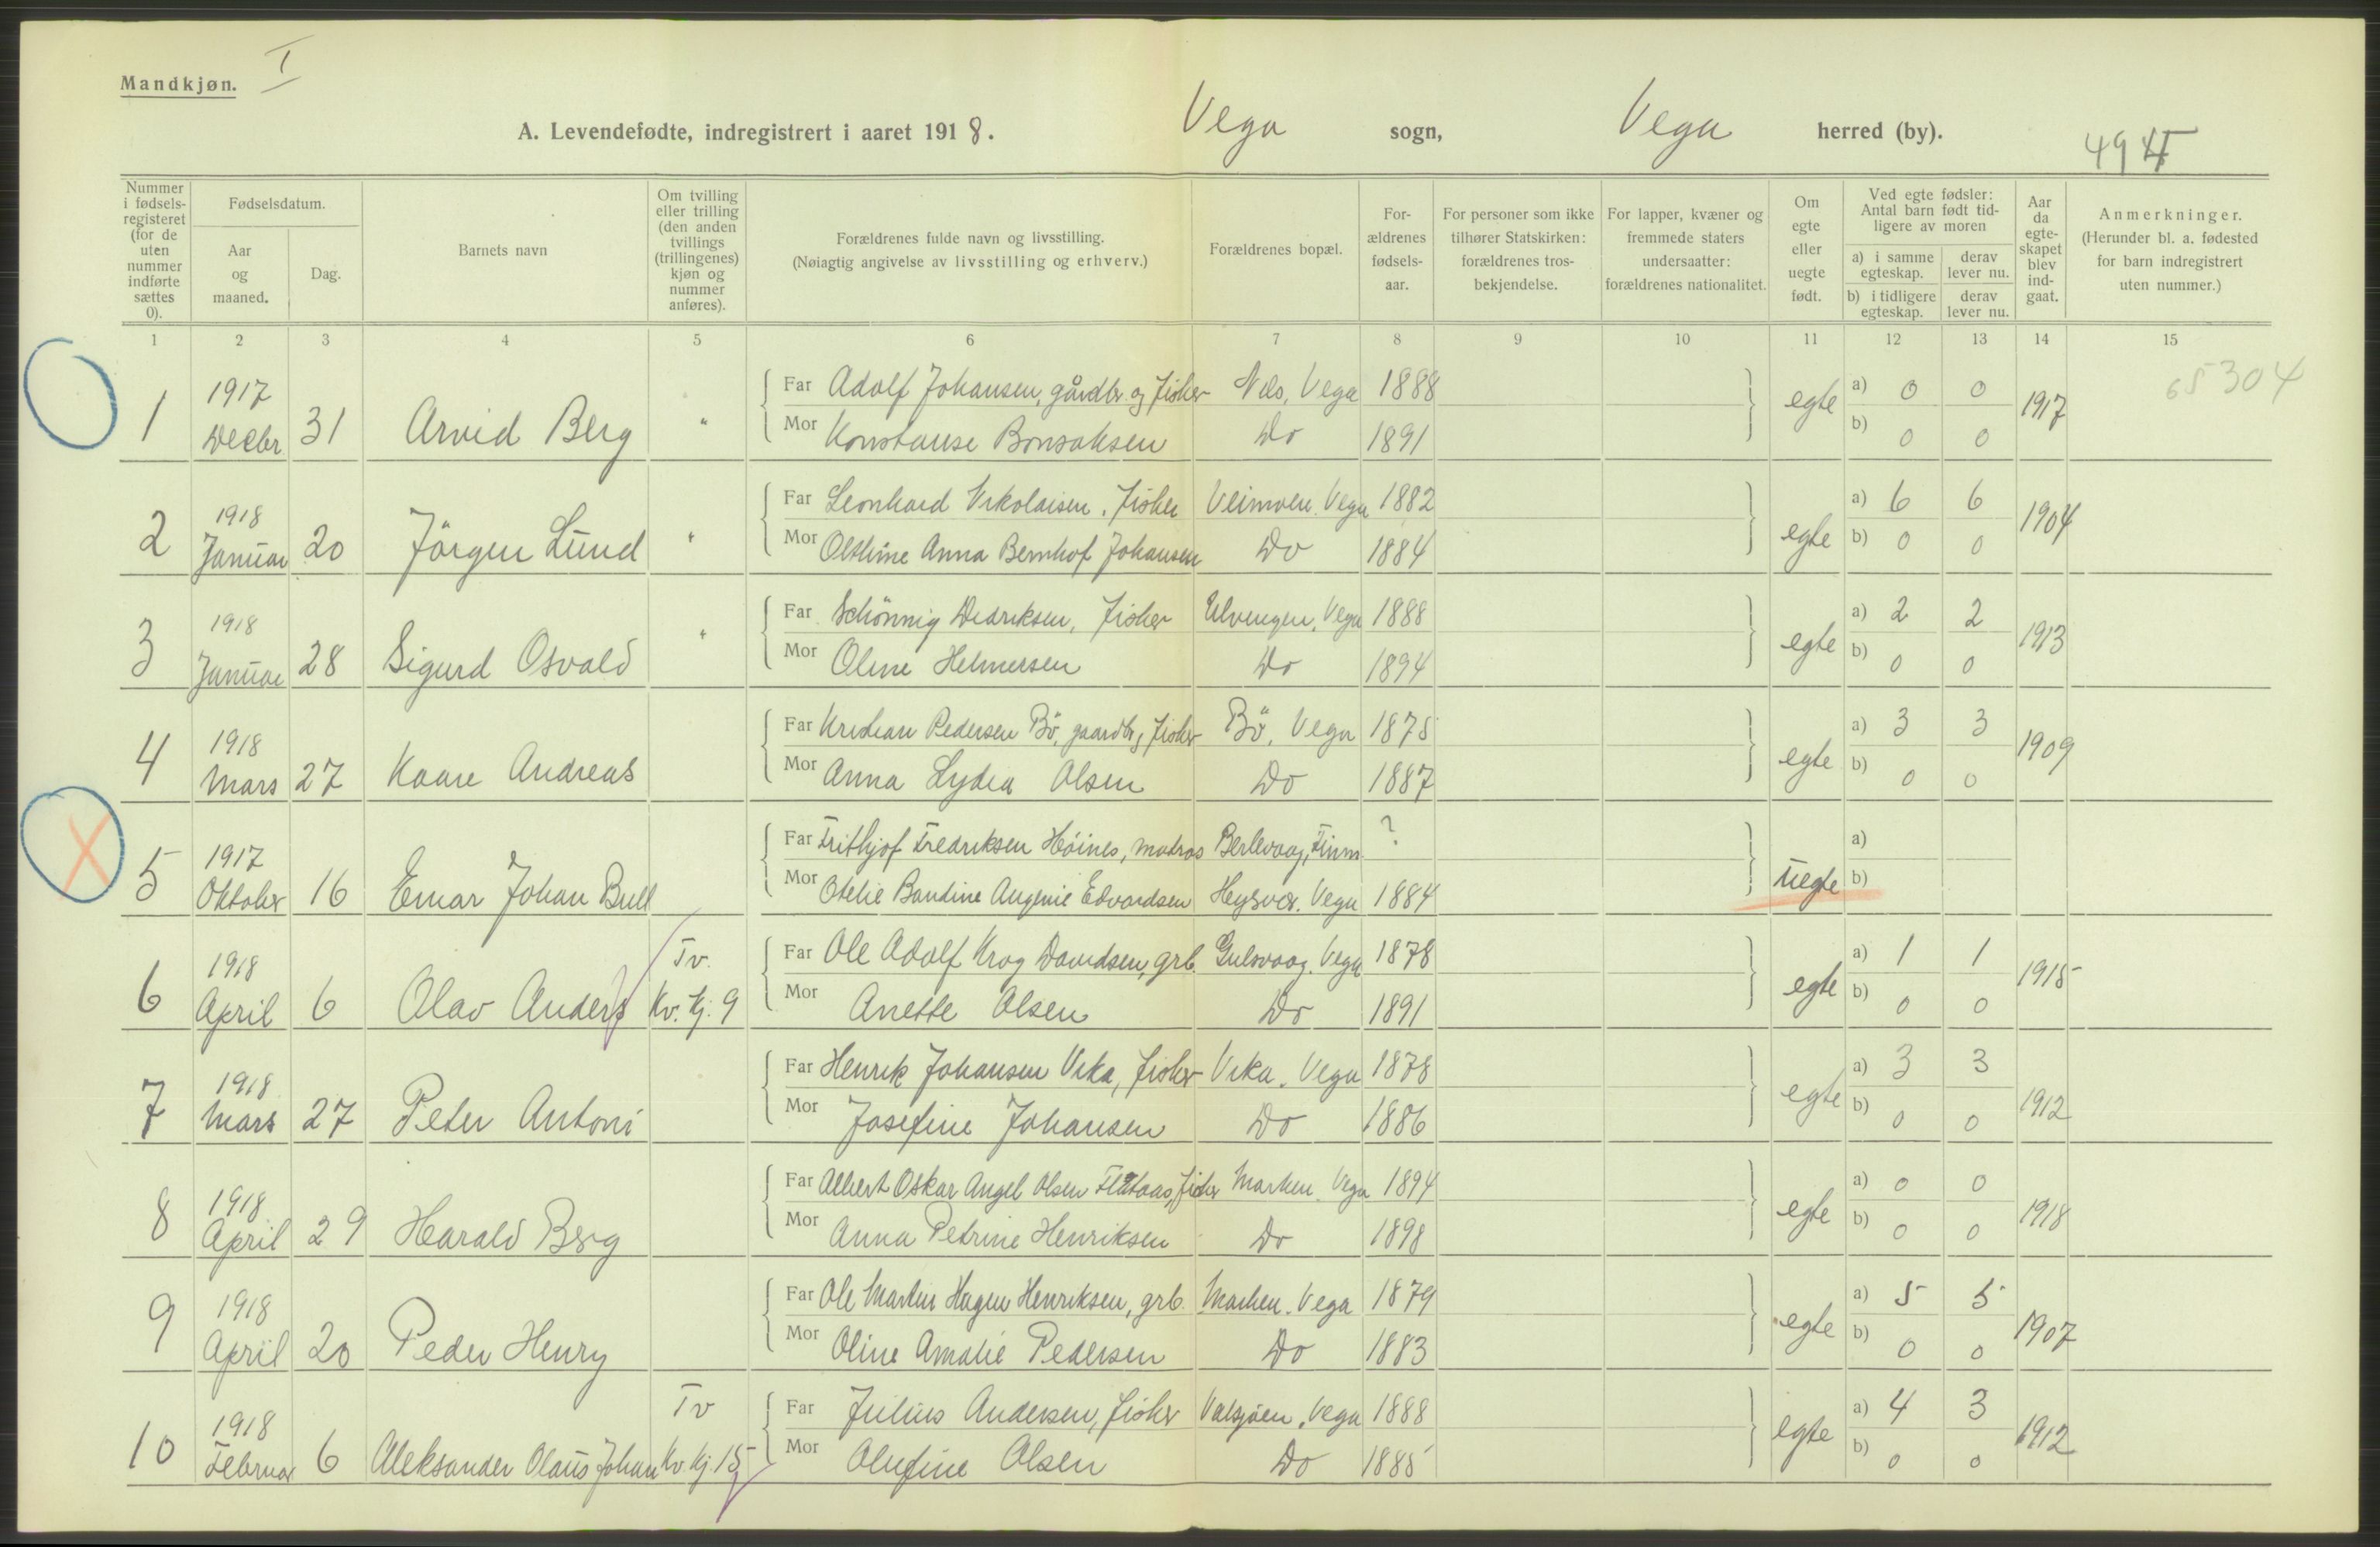 Mandkjøn. I
A. Levendefødte, indregistrert i aaret 1918. Vega sogn, Vega herred (by).
49
Nummer i fødsels-registeret (for de uten nummer indførte sættes 0).
Fødselsdatum.
Aar og maaned.
Dag.
Barnets navn
Om tvilling eller trilling (den anden tvillings (trillingenes) kjøn og nummer anføres).
Forældrenes fulde navn og livsstilling.
(Nøiagtig angivelse av livsstilling og erhverv.)
Forældrenes bopæl.
For-ældrenes fødsels-aar.
For personer som ikke tilhører Statskirken: forældrenes tros-bekjendelse.
For lapper, kvæner og fremmede staters undersaatter: forældrenes nationalitet.
Om egte eller uegte født.
Ved egte fødsler: Antal barn født tid-ligere av moren
a) i samme egteskap. derav lever nu.
b) i tidligere egteskap. derav lever nu.
Aar da egte-skapet blev ind-gaat.
Anmerkninger.
(Herunder bl. a. fødested for barn indregistrert uten nummer.)
1 2 3 4 5 6 7 8 9 10 11 12 13 14 15
65304
1 1917 Decbr 31 Arvid Berg "
Far Adolf Johansen, gårdbr. og fisker Nes, Vega 1888 egte a) 0 0 1917
Mor Konstanse Bonsaksen Do 1891 b) 0 0
2 1918 Januar 20 Jörgen Lund "
Far Leonhard Nikolaisen, fisker Veimoen. Vega 1882 egte a) 6 6 1904
Mor Olstine Anna Bernhof Johansen Do 1884 b) 0 0
3 1918 Januar 28 Sigurd Osvald "
Far Schönnig Dedriksen, fisker Ulvengen, Vega 1888 egte a) 2 2 1913
Mor Oline Helmersen Do 1894 b) 0 0
4 1918 Mars 27 Kaare Andreas
Far Kristian Pedersen Bö, gaardbr, fisker Bö, Vega 1875 egte a) 3 3 1909
Mor Anna Lydia Olsen Do 1887 b) 0 0
X
5 1917 Oktober 16 Einar Johan Bull
Far Frithjof Fredriksen Höines, matros Berlevaag, Finm. ? uegte a)
Mor Otelie Bandine Augenie Edvardsen Heysvær. Vega 1884 b)
6 1918 April 6 Olav Anders Tv. Kv. Kj. 9
Far Ole Adolf Krog Davidsen, grb. Gulsvaag. Vega 1878 egte a) 1 1 1915
Mor Anette Olsen Do 1891 b) 0 0
7 1918 Mars 27 Peter Antoni
Far Henrik Johansen Vika, fisker Vika. Vega 1878 egte a) 3 3 1912
Mor Josefine Johansen Do 1886 b) 0 0
8 1918 April 29 Harald Berg
Far Albert Oskar Angel Olsen Flataas, fisker Marken. Vega 1894 egte a) 0 0 1918
Mor Anna Petrine Henriksen Do 1898 b) 0 0
9 1918 April 20 Peder Henry
Far Ole Martin Hagen Henriksen, grb. Marken. Vega 1879 egte a) 5 5 1907
Mor Oline Amalie Pedersen Do 1883 b) 0 0
10 1918 Februar 6 Aleksander Olaus Johan Tv Kv. Kj. 15
Far Julius Andersen, fisker Valsjöen. Vega 1888 egte a) 4 3 1912
Mor Olufine Olsen Do 1885 b) 0 0